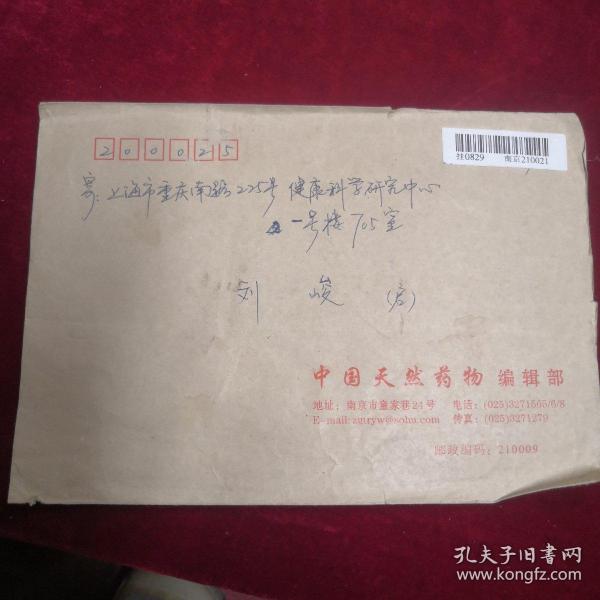 挂0829 南京210021
200025
寄:上海市重庆南路225号 健康科学研究中心
一号楼 705室
刘 峻 (启)
中国天然药物 编辑部
地址:南京市童家巷24号 电话:(025)3271565/6/8
E-mail:zgtryw@sohu.com 传真:(025)3271279
邮政编码:210009
孔夫子旧书网
www.kongfz.com